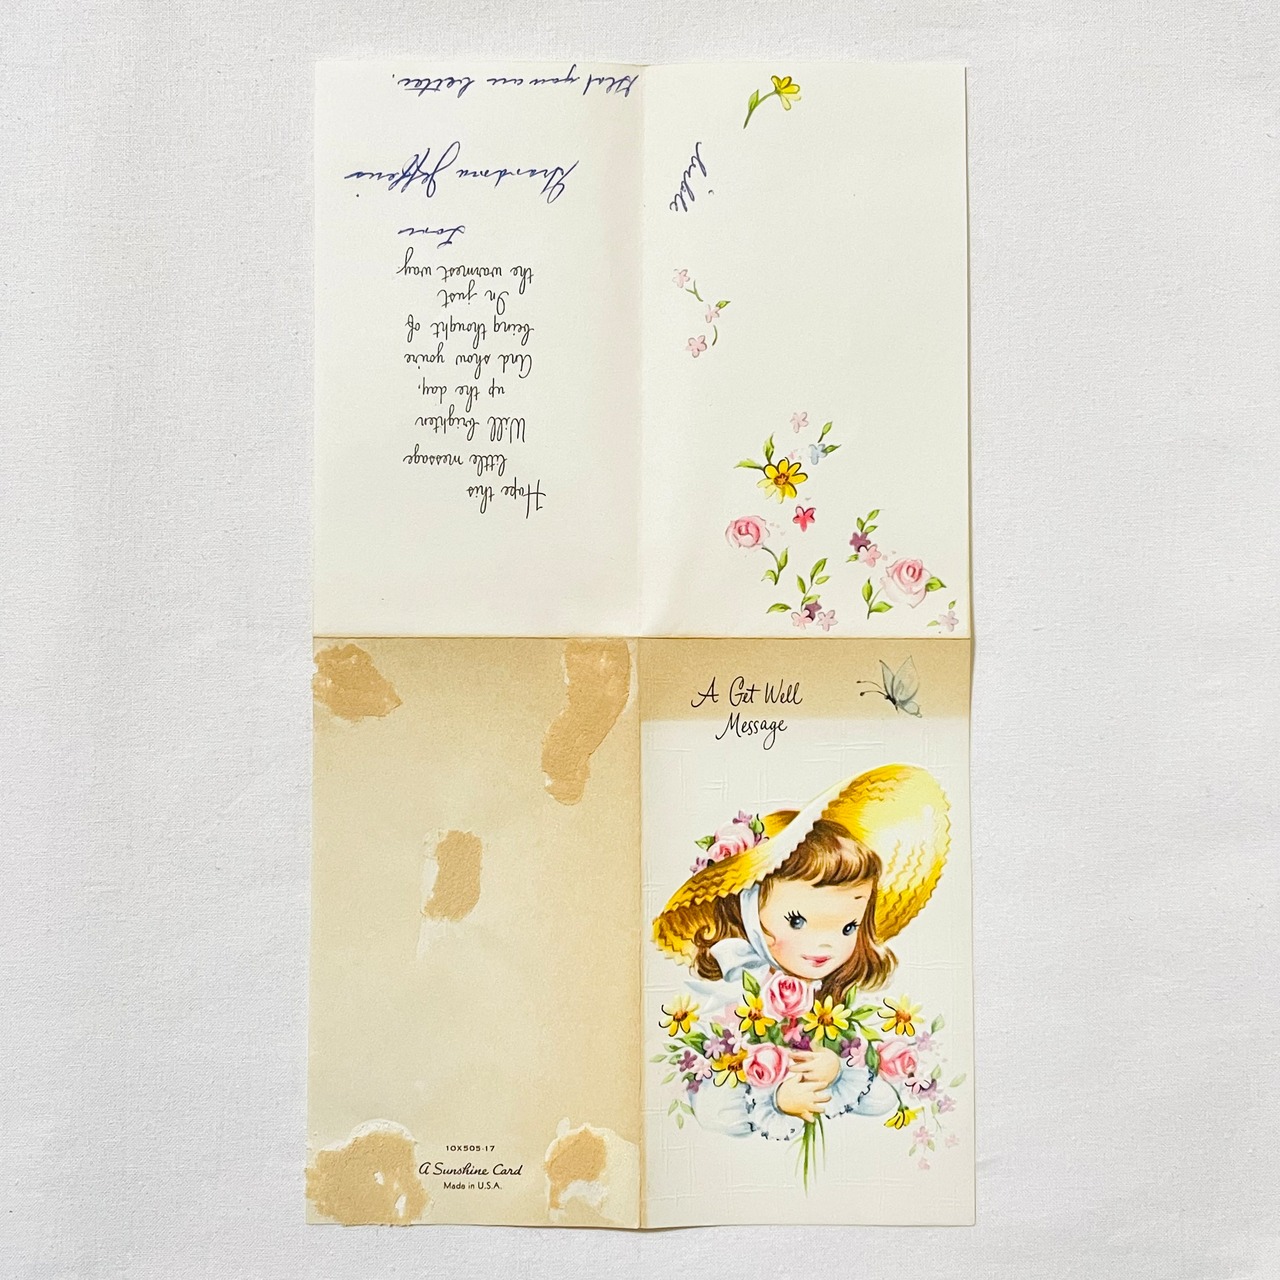 A Get Well
Message
10X505-17
A Sunshine Card
Made in U.S.A.
Hope this
little message
Will brighten
up the day,
And show you're
being thought of
In just
the warmest way
Love
Grandma Jefferis
Glad you are better.